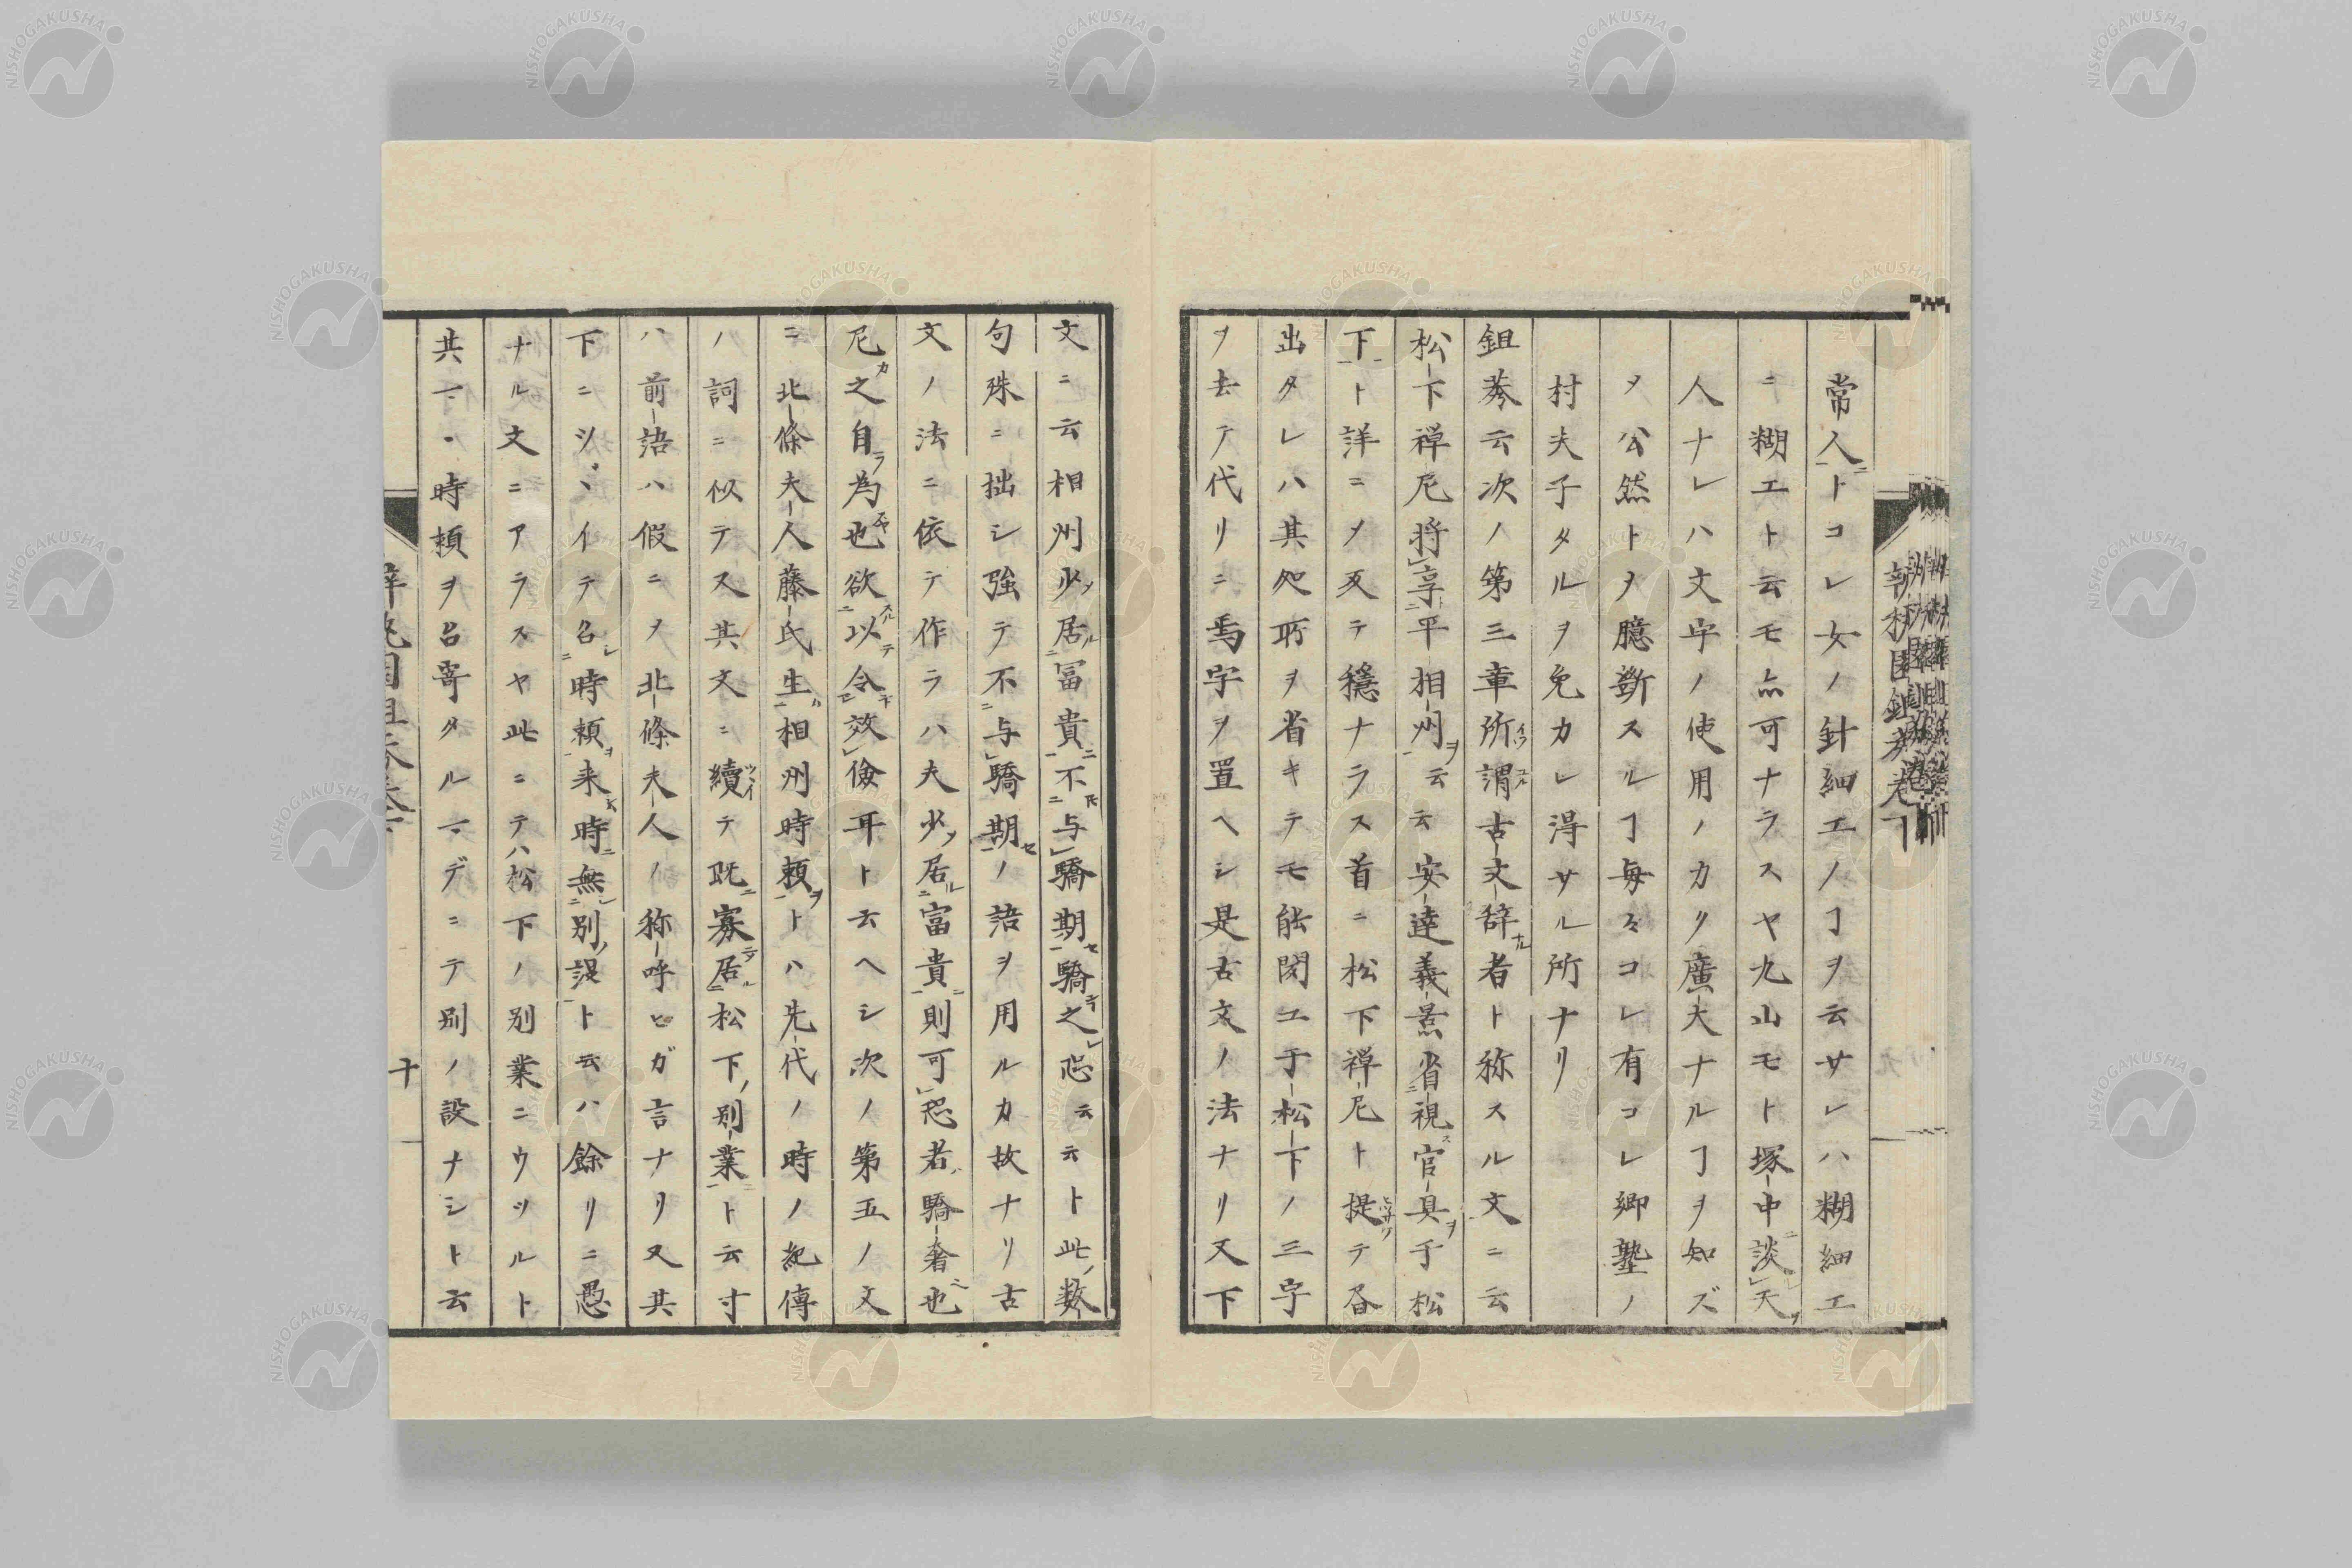 常人トコレ女ノ針細工ノヿヲ云サレハ糊細工
ニ糊工ト云モ亦可ナラスヤ九山モト塚中談天
人ナレハ文字ノ使用ノカク廣大ナルヿヲ知ズ
ヌ公然トノ臆斷スルヿ毎々コレ有コレ郷塾ノ
村夫子タルヲ免カレ得サル所ナリ
鉏莠云次ノ第三章所謂古文辞者ト称スル文ニ云
松下禅尼将享平相州云云安達義景省視官具于松
下ト詳ニノ反テ穏ナラス首ニ松下禅尼ト提テ畓
出タレハ其処所ヲ省キテモ能閲エ于松下ノ三字
ヲ去テ代リニ焉字ヲ置ヘシ是古文ノ法ナリ又下
文ニ云相州少居冨貴不与驕期驕之恐云云ト此数
句殊ニ拙シ強テ不与驕期ノ語ヲ用ルカ故ナリ古
文ノ法ニ依テ作ラハ夫少居富貴則可恐者驕奢也
尼之自為也欲以令效儉耳ト云ヘシ次ノ第五ノ文
ニ北條夫人藤氏生相州時頼トハ先代ノ時ノ紀傳
ノ詞ニ似テス其文ニ續テ既寡居松下別業ト云寸
ハ前語ハ假ニヲ北條夫人ノ称呼ヒガ言ナリ又其
下ニツヽイテ召時頼来時無別設ト云ハ餘リニ愚
ナル文ニアラスヤ此ニテハ松下ノ別業ニウツルト
共ニ時頼ヲ召寄タルニデニテ別ノ設ナシト云
十